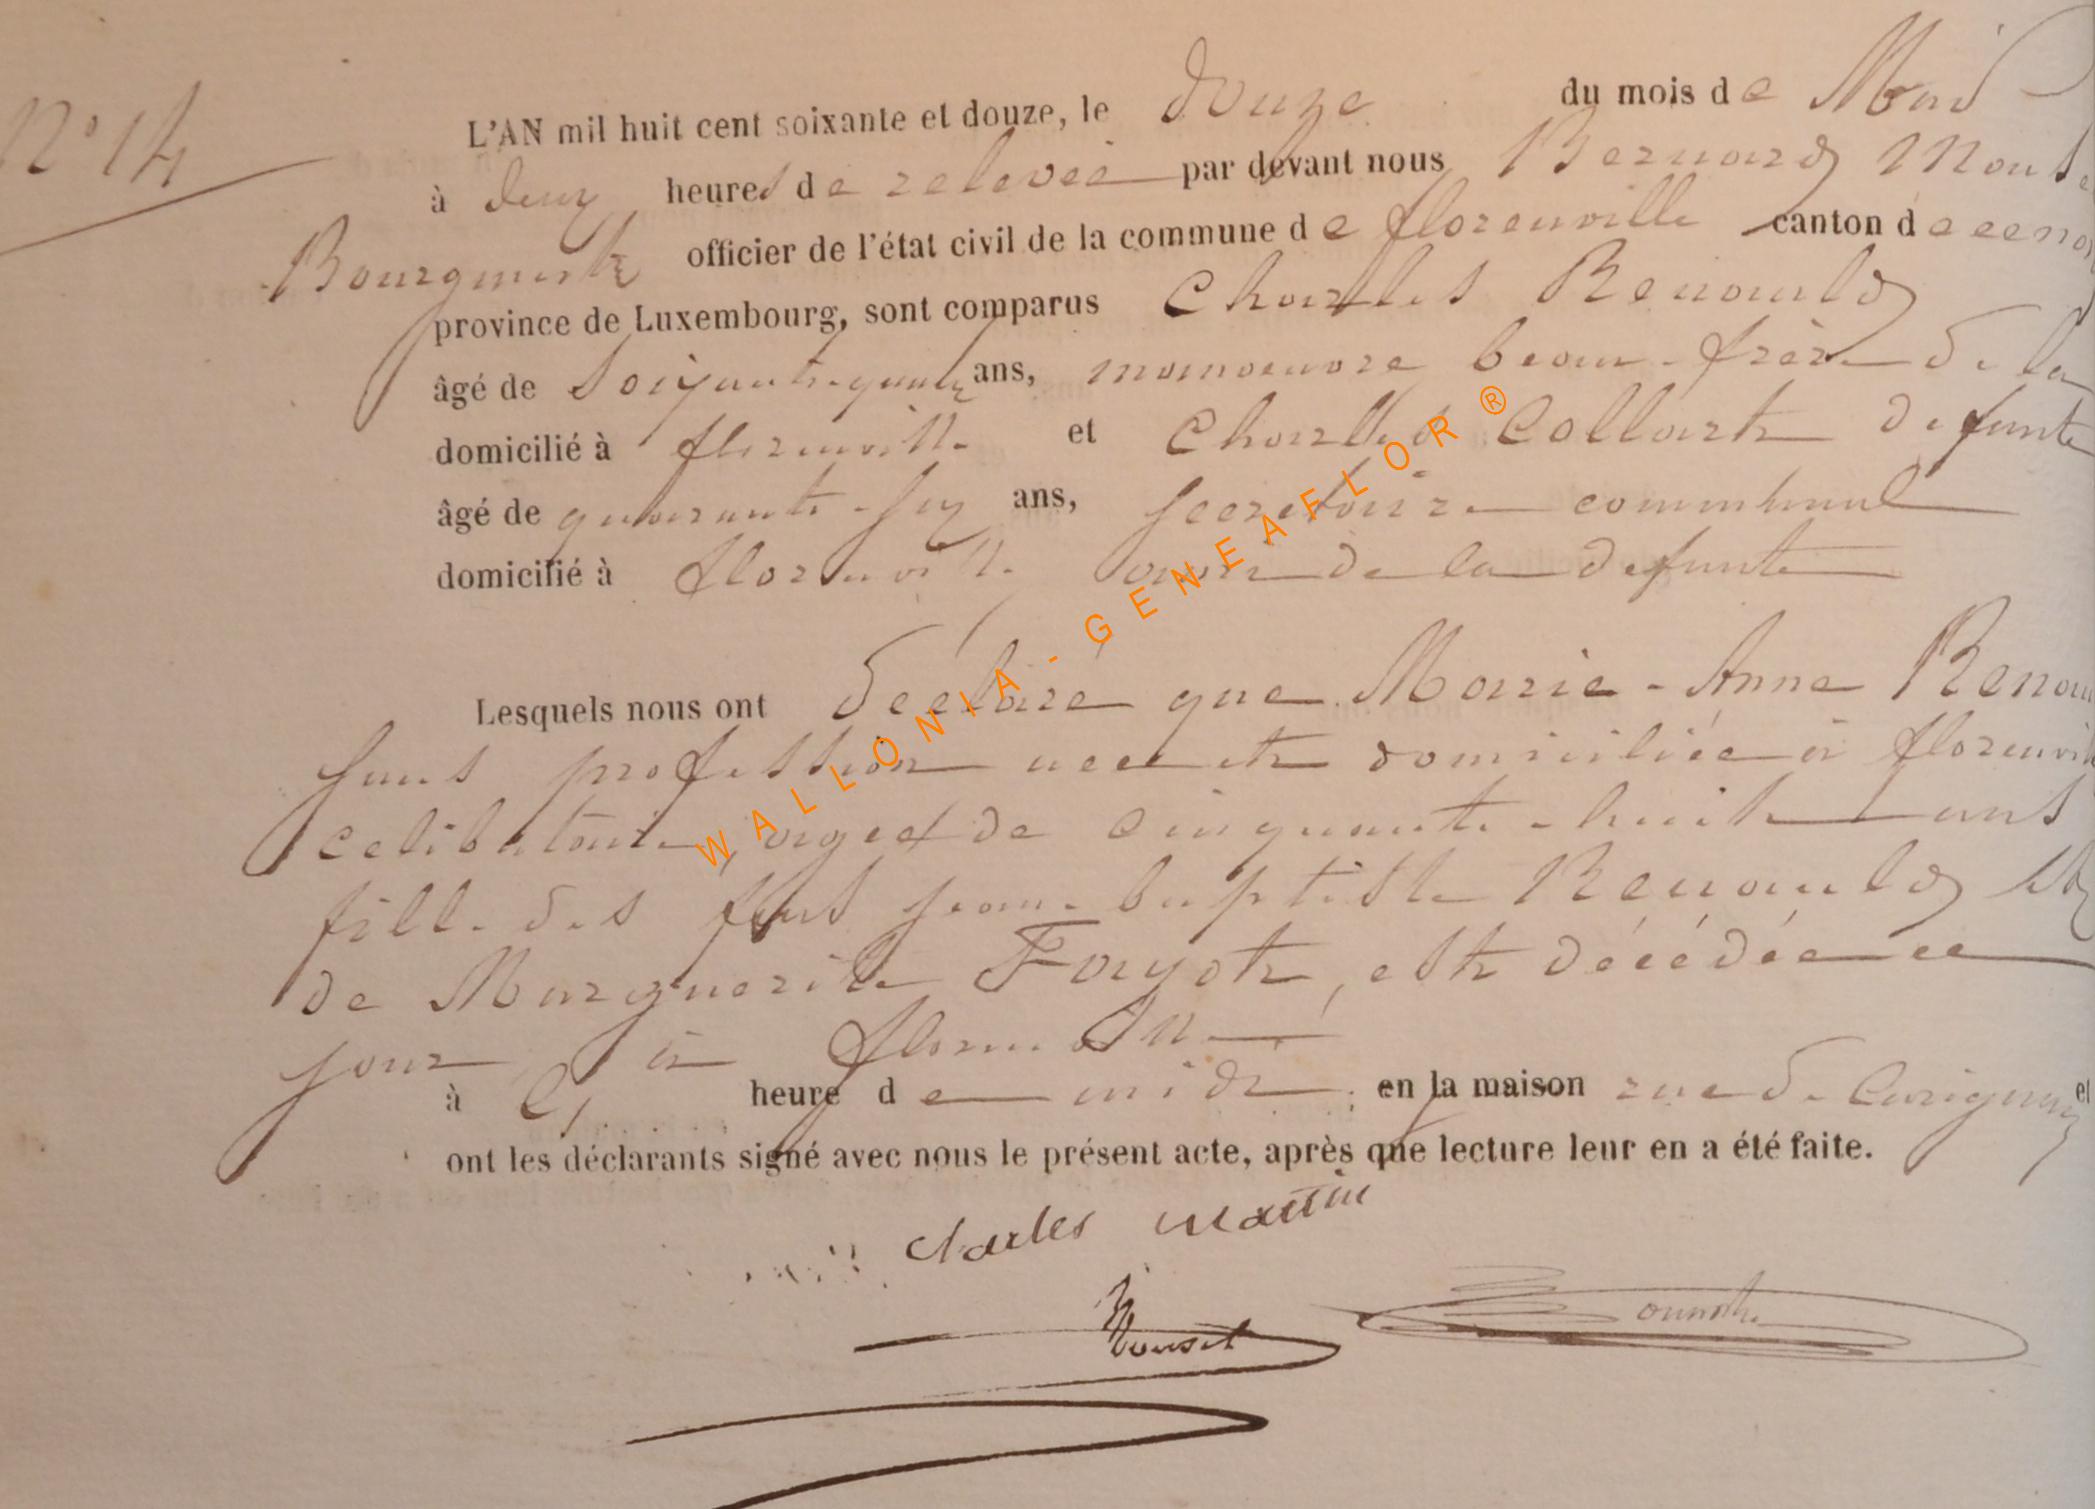 N° 14
L'AN mil huit cent soixante et douze, le douze du mois de
à deux heures de relevée par devant nous Bernard
Bourgmestre officier de l'état civil de la commune de florenville canton de
province de Luxembourg, sont comparus Charles Renauld
âgé de ans, manoeuvre beau-frère de la
domicilié à florenville et Charles Collart defunte
âgé de quarante-six ans, secretaire communal
domicilié à florenville de la defunte
Lesquels nous ont déclaré que Marie-Anne
sans profession domiciliée à
celibataire, agee de cinquante-huit ans
fille des feus jean-baptiste Renauld
de Marguerite Fayot, est décédée ce
jour à florenville
à heure de midi en la maison rue de Carignan et
ont les déclarants signé avec nous le présent acte, après que lecture leur en a été faite.
charles martin
WALLONIA-GENEAFLOR®